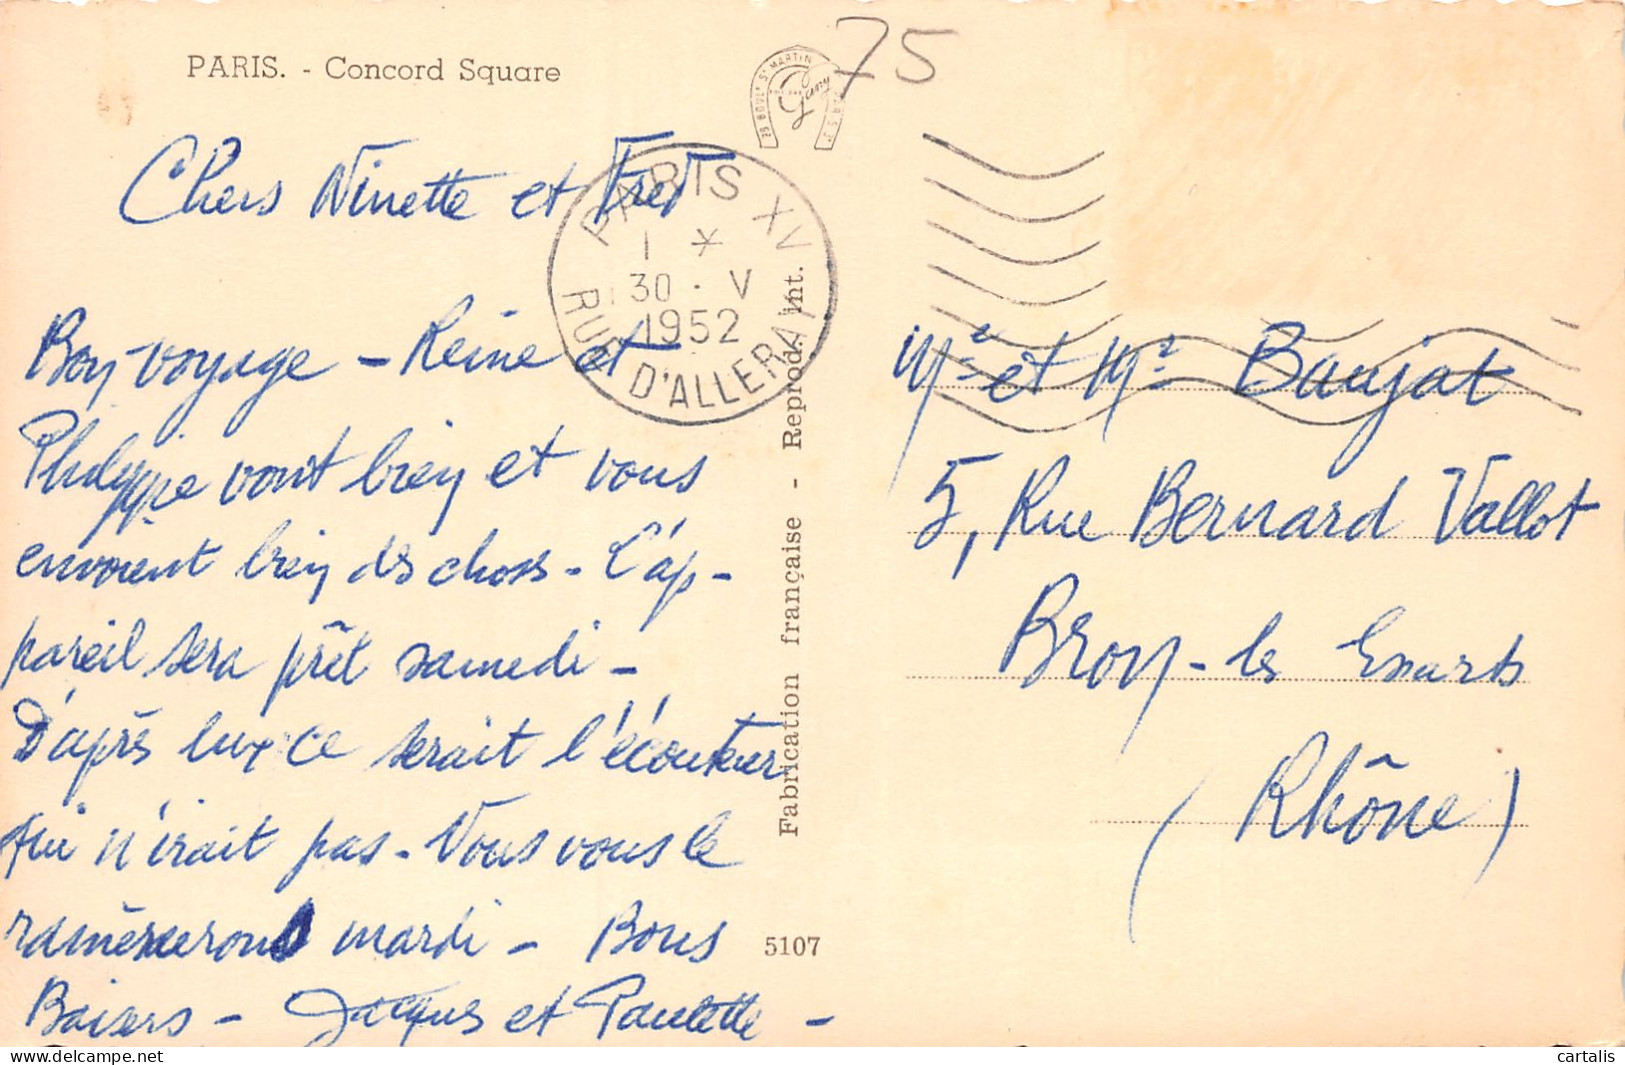 PARIS. - Concord Square
75
25 BOUL. ST MARTIN
PARIS XV
1 *
30 . V
1952
RUE D'ALLERAY
Chers Ninette et Fred
Bon voyage - Reine et
Philippe vont bien et vous
envoient bien ds choses - L'ap-
pareil sera prêt samedi -
D'après lux ce serait l'écouteur
qui n'irait pas - Nous vous le
ramènerons mardi - Bons
Baisers - Jacques et Paulette -
Fabrication française - Reprod. int.
5107
Me et Mr Baujat
5, Rue Bernard Vallot
Bron-les Essarts
(Rhône)
cartalis